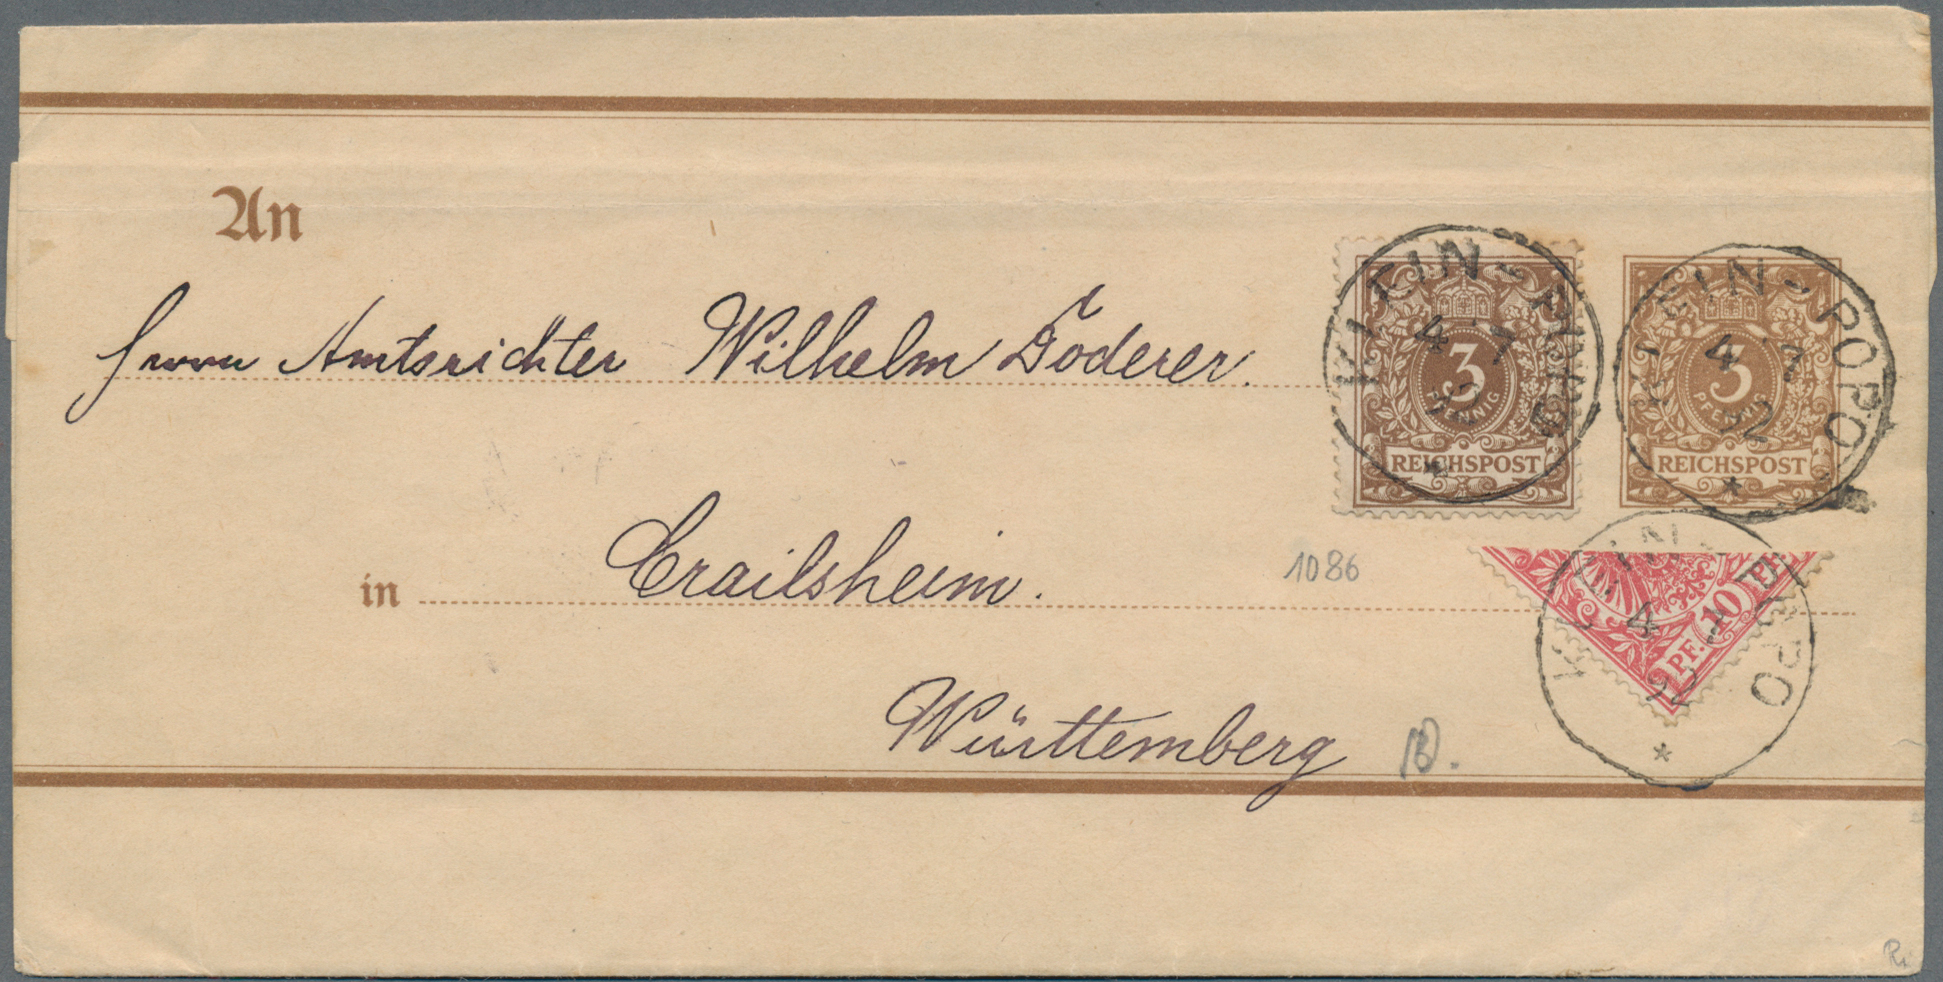 An
Herrn Amtsrichter Wilhelm Döderer.
KLEIN-POPO
4 7
92
*
3
PFENNIG
REICHSPOST
KLEIN-POPO
4 7
92
*
3
PFENNIG
REICHSPOST
in Crailsheim.
1086
KLEIN-POPO
4 7
92
*
PF. 10 PF.
Württemberg